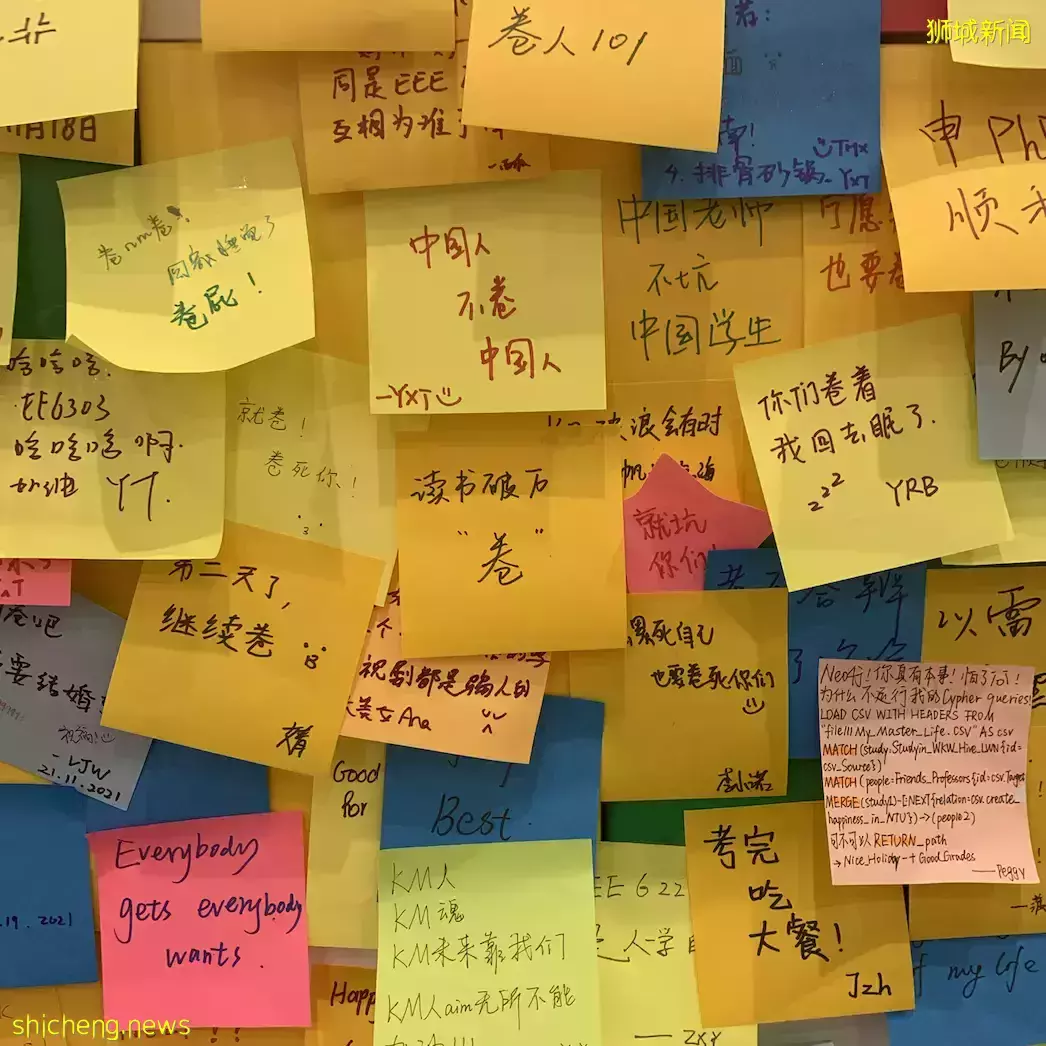 狮城新闻
卷人101
月18日
同是EEE
互相为难
TMX
4. 排骨砂锅
YXT
申 PhD
顺利
卷nm卷！
回家睡觉了
卷屁！
中国人
不卷
中国人
—YXT
中国老师
不坑
中国学生
宁愿
也要卷
By
哈哈哈.
EE6303
哈哈哈 啊.
YT.
就卷！
卷死你！
浪会有时
读书破万
“卷”
就坑
你们
你们卷着
我回去眠了.
zzz YRB
第二天了,
继续卷
要结婚
- LJW
21.11.2021
祝割都是骗人的
美女Ana
累死自己
也要卷死你们
李小诺
以雷
Neo4j! 你真有本事! 怕了you!
为什么不运行我的Cypher queries!
LOAD CSV WITH HEADERS FROM
"file///My_Master_Life.csv" AS csv
MATCH (study:Study_in_WKW_Hive_LWN {id=
csv_Source})
MATCH (people=Friends_Professors{id=csv.Target
MERGE (study1)-[:NEXT{relation=csv.create_
happiness_in_NTU}]->(people2)
可不可以 RETURN_path
→ Nice_Holiday-+ Good_Grades
—— Peggy
Good
for
Best.
Everybody
gets everybody
wants.
.19. 2021
KM人
KM魂
KM未来靠我们
KM人aim无所不能
EE 622
人学
—— ZXY
考完
吃
大餐！
Jzh
of my life
Happy
shicheng.news